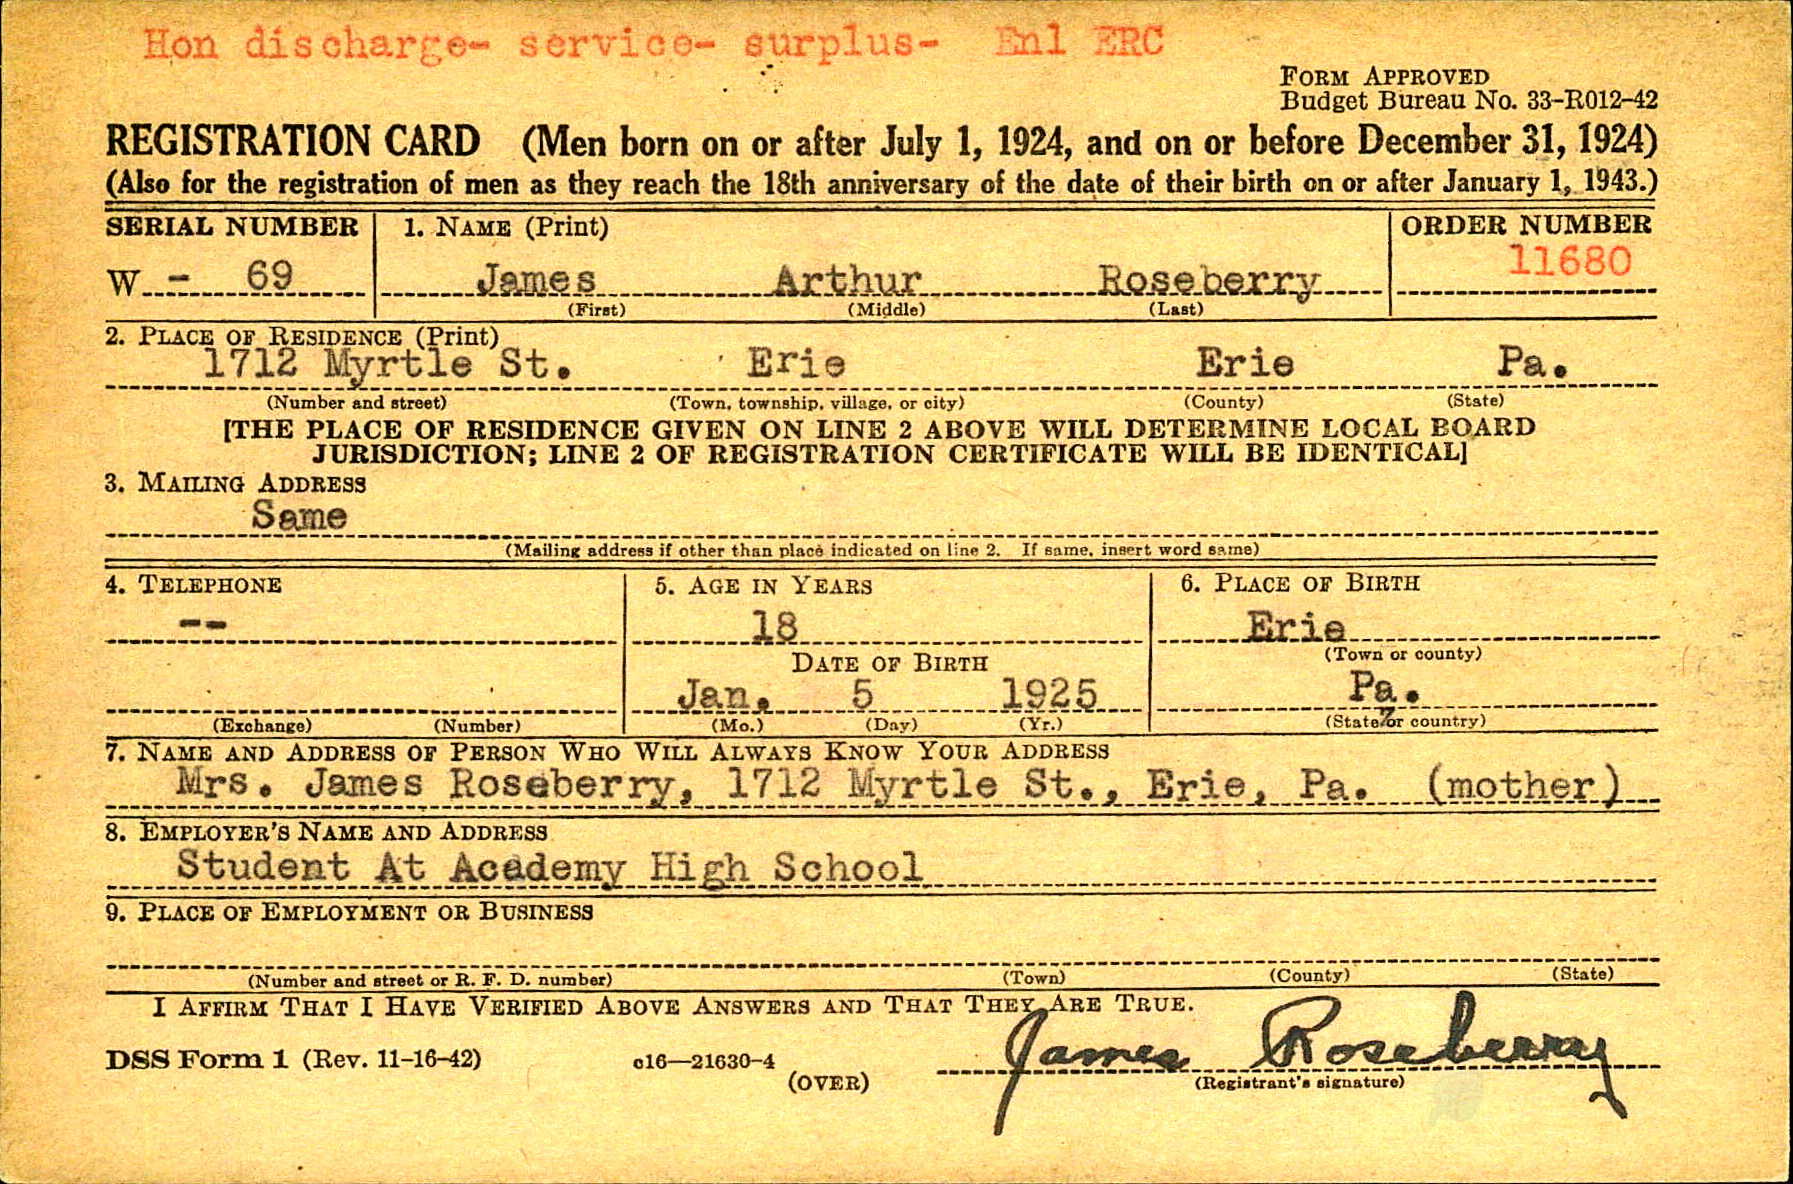 Hon discharge- service- surplus- Enl ERC
FORM APPROVED
Budget Bureau No. 33-R012-42
REGISTRATION CARD (Men born on or after July 1, 1924, and on or before December 31, 1924)
(Also for the registration of men as they reach the 18th anniversary of the date of their birth on or after January 1, 1943.)
SERIAL NUMBER 1. NAME (Print) ORDER NUMBER
11680
W - 69 James Arthur Roseberry
(First) (Middle) (Last)
2. PLACE OF RESIDENCE (Print)
1712 Myrtle St. Erie Erie Pa.
(Number and street) (Town, township, village, or city) (County) (State)
[THE PLACE OF RESIDENCE GIVEN ON LINE 2 ABOVE WILL DETERMINE LOCAL BOARD
JURISDICTION; LINE 2 OF REGISTRATION CERTIFICATE WILL BE IDENTICAL]
3. MAILING ADDRESS
Same
(Mailing address if other than place indicated on line 2. If same, insert word same)
4. TELEPHONE 5. AGE IN YEARS 6. PLACE OF BIRTH
-- 18 Erie
(Town or county)
DATE OF BIRTH
Jan. 5 1925 Pa.
(Exchange) (Number) (Mo.) (Day) (Yr.) (State or country)
7. NAME AND ADDRESS OF PERSON WHO WILL ALWAYS KNOW YOUR ADDRESS
Mrs. James Roseberry, 1712 Myrtle St., Erie, Pa. (mother)
8. EMPLOYER'S NAME AND ADDRESS
Student At Academy High School
9. PLACE OF EMPLOYMENT OR BUSINESS
(Number and street or R. F. D. number) (Town) (County) (State)
I AFFIRM THAT I HAVE VERIFIED ABOVE ANSWERS AND THAT THEY ARE TRUE.
James Roseberry
DSS Form 1 (Rev. 11-16-42) c16—21630-4
(OVER) (Registrant's signature)